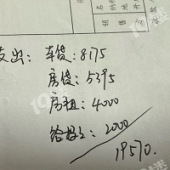 支出：车贷：8175
房贷：5395
房租：4000
给好之：2000
19570.